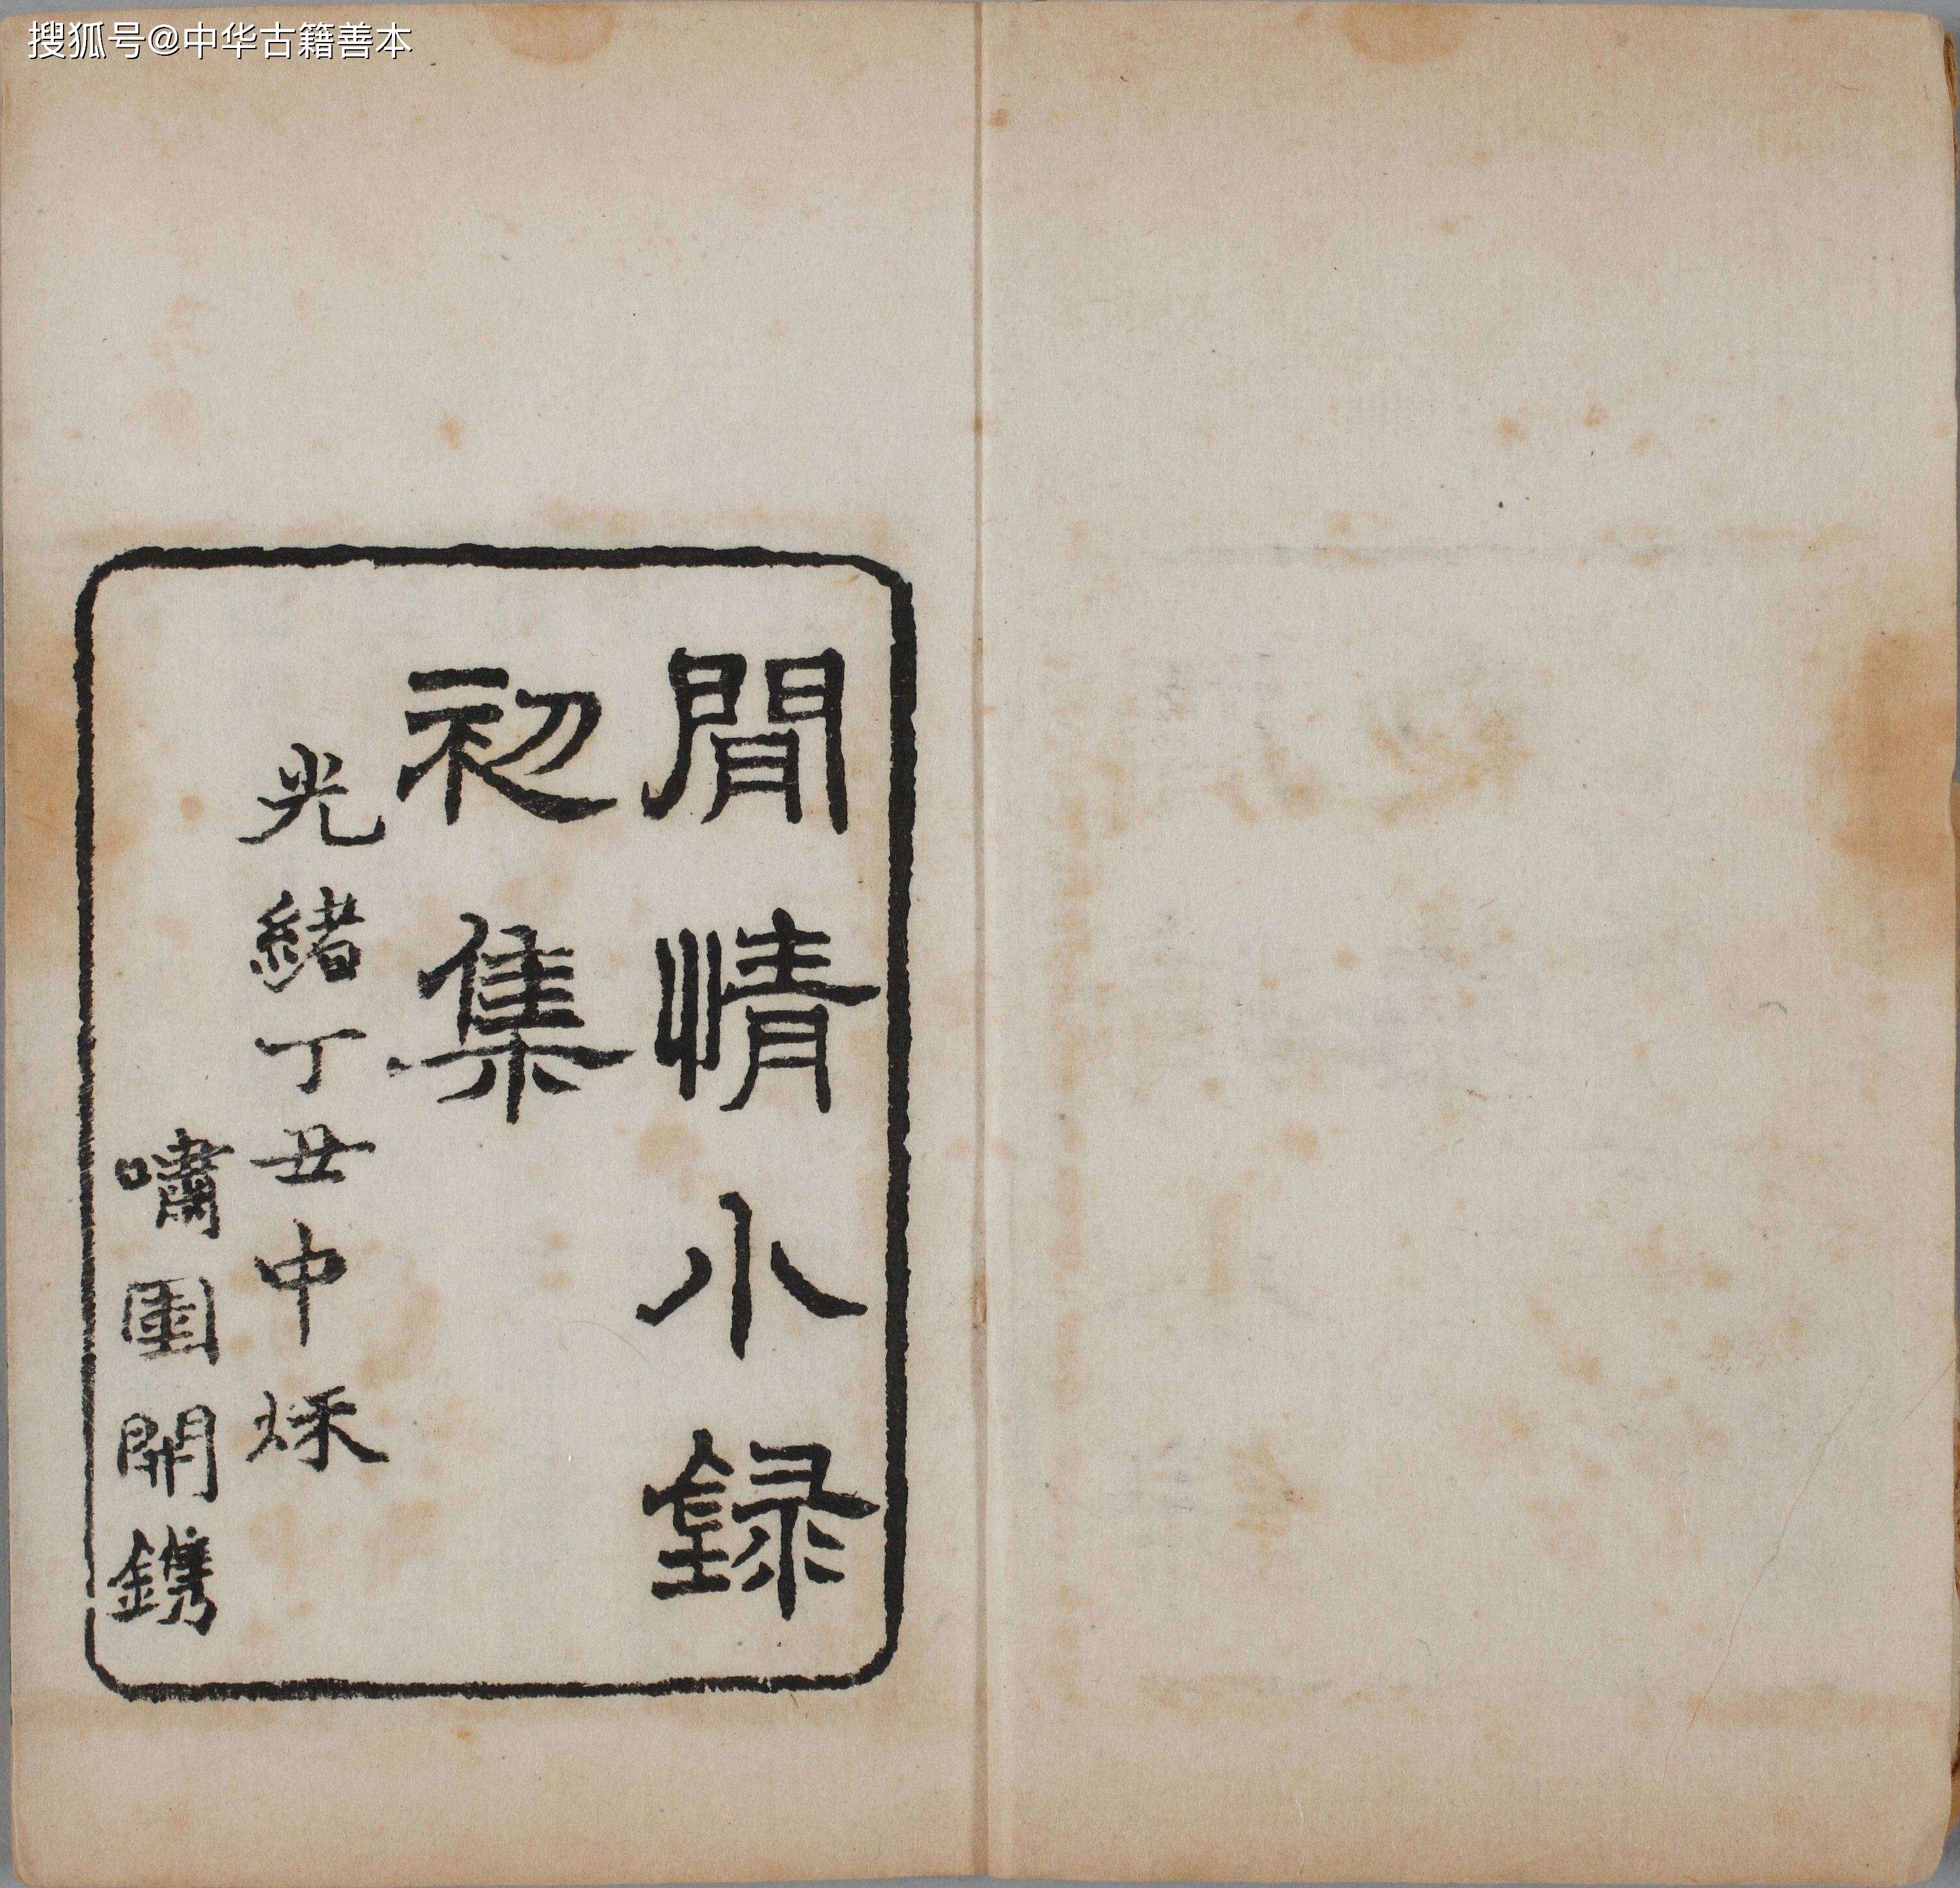 搜狐号@中华古籍善本
閒情小録
初集
光緒丁丑中秌
嘯園開鐫